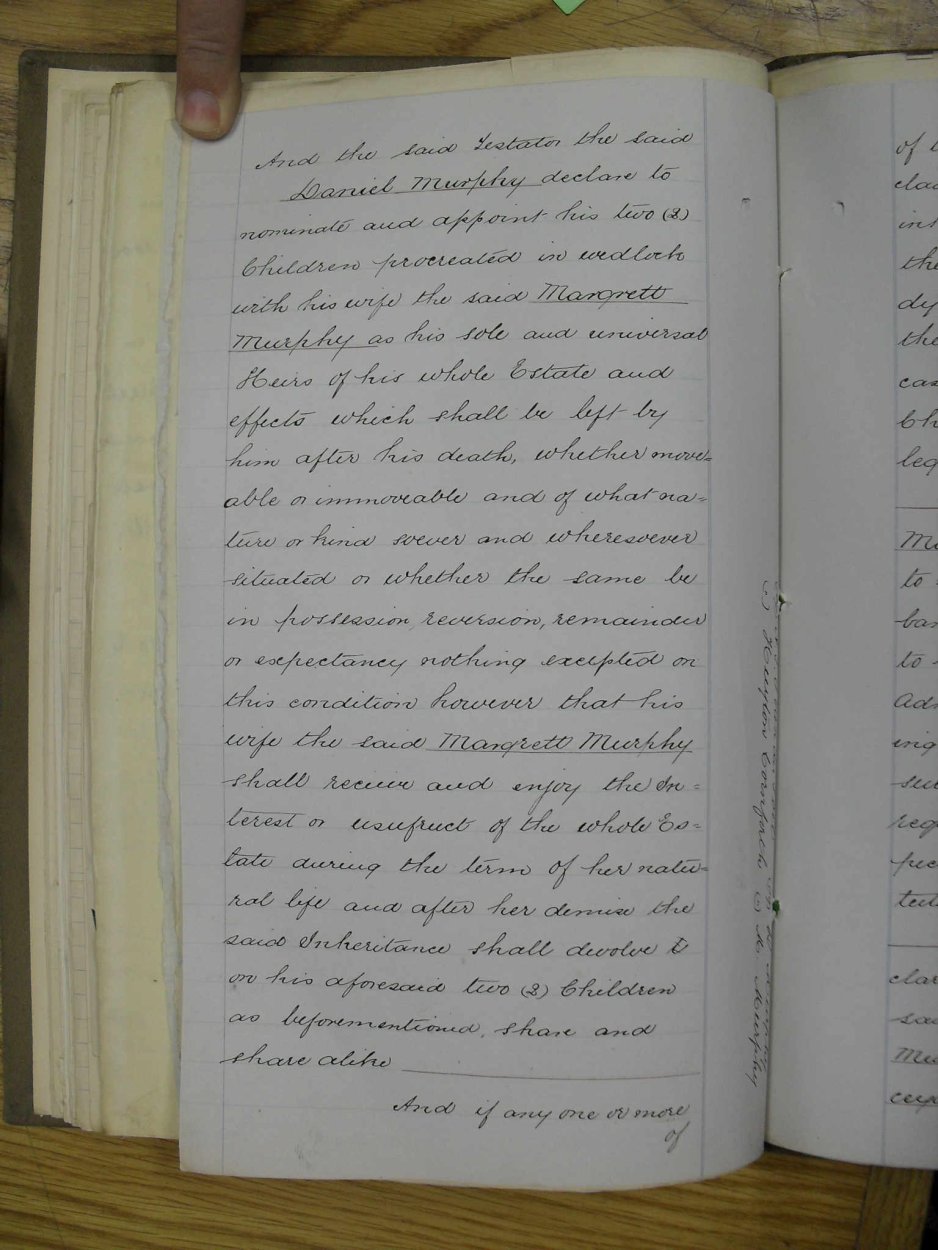 And the said Testator the said
Daniel Murphy declare to
nominate and appoint his two (2)
Children procreated in wedlock
with his wife the said Margrett
Murphy as his sole and universal
Heirs of his whole Estate and
effects which shall be left by
him after his death, whether move=
able or immoveable and of what na=
ture or kind soever and wheresoever
situated or whether the same be
in possession, reversion, remainder
or expectancy nothing excepted on
this condition however that his
wife the said Margrett Murphy
shall receive and enjoy the In=
terest or usufruct of the whole Es=
tate during the term of her natu=
ral life and after her demise the
said Inheritance shall devolve
on his aforesaid two (2) Children
as beforementioned, share and
share alike
And if any one or more
of
of
the
dy
the
cas
Ch
leg
Mu
to
ban
to
Adm
ing
reg
pec
clar
sai
Mu